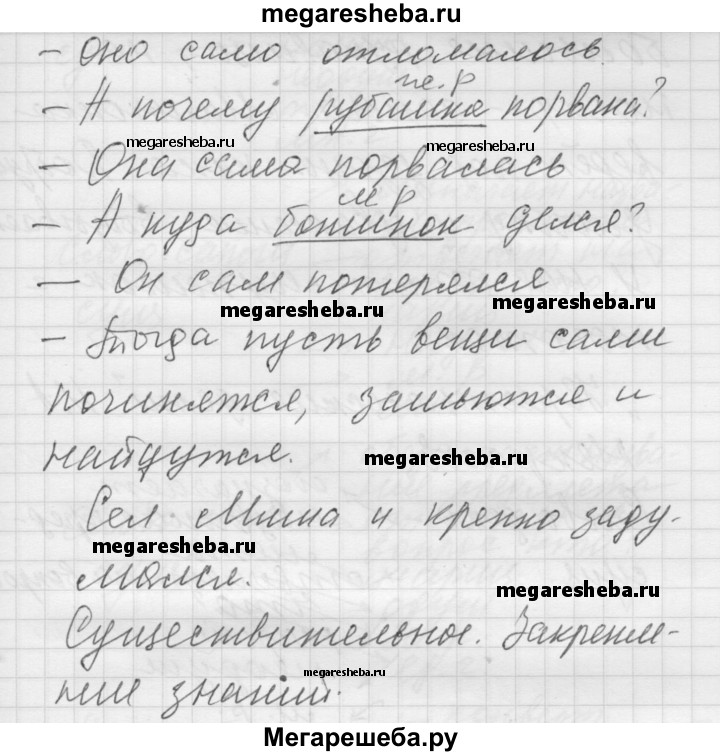 megaresheba.ru
- Оно само отломалось.
же.р
- А почему рубашка порвана?
megaresheba.ru megaresheba.ru
- Она сама порвалась
м р
- А куда ботинок делся?
- Он сам потерялся
megaresheba.ru megaresheba.ru
- Тогда пусть вещи сами
починятся, зашьются и
найдутся.
megaresheba.ru
Сел Миша и крепко заду-
megaresheba.ru
мался.
megaresheba.ru
Существительное. Закрепле-
megaresheba.ru
ние знаний.
Мегарешеба.ру